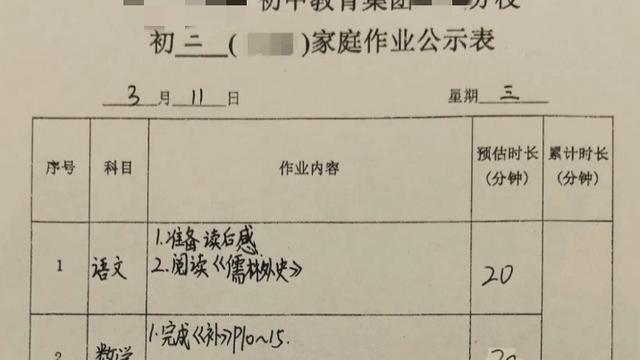 初中教育集团 分校
初三( )家庭作业公示表
3月11日 星期三
序号 科目 作业内容 预估时长(分钟) 累计时长(分钟)
1 语文 1.准备读后感
2.阅读《儒林外史》 20
2 数学 1.完成《补》P10~15.